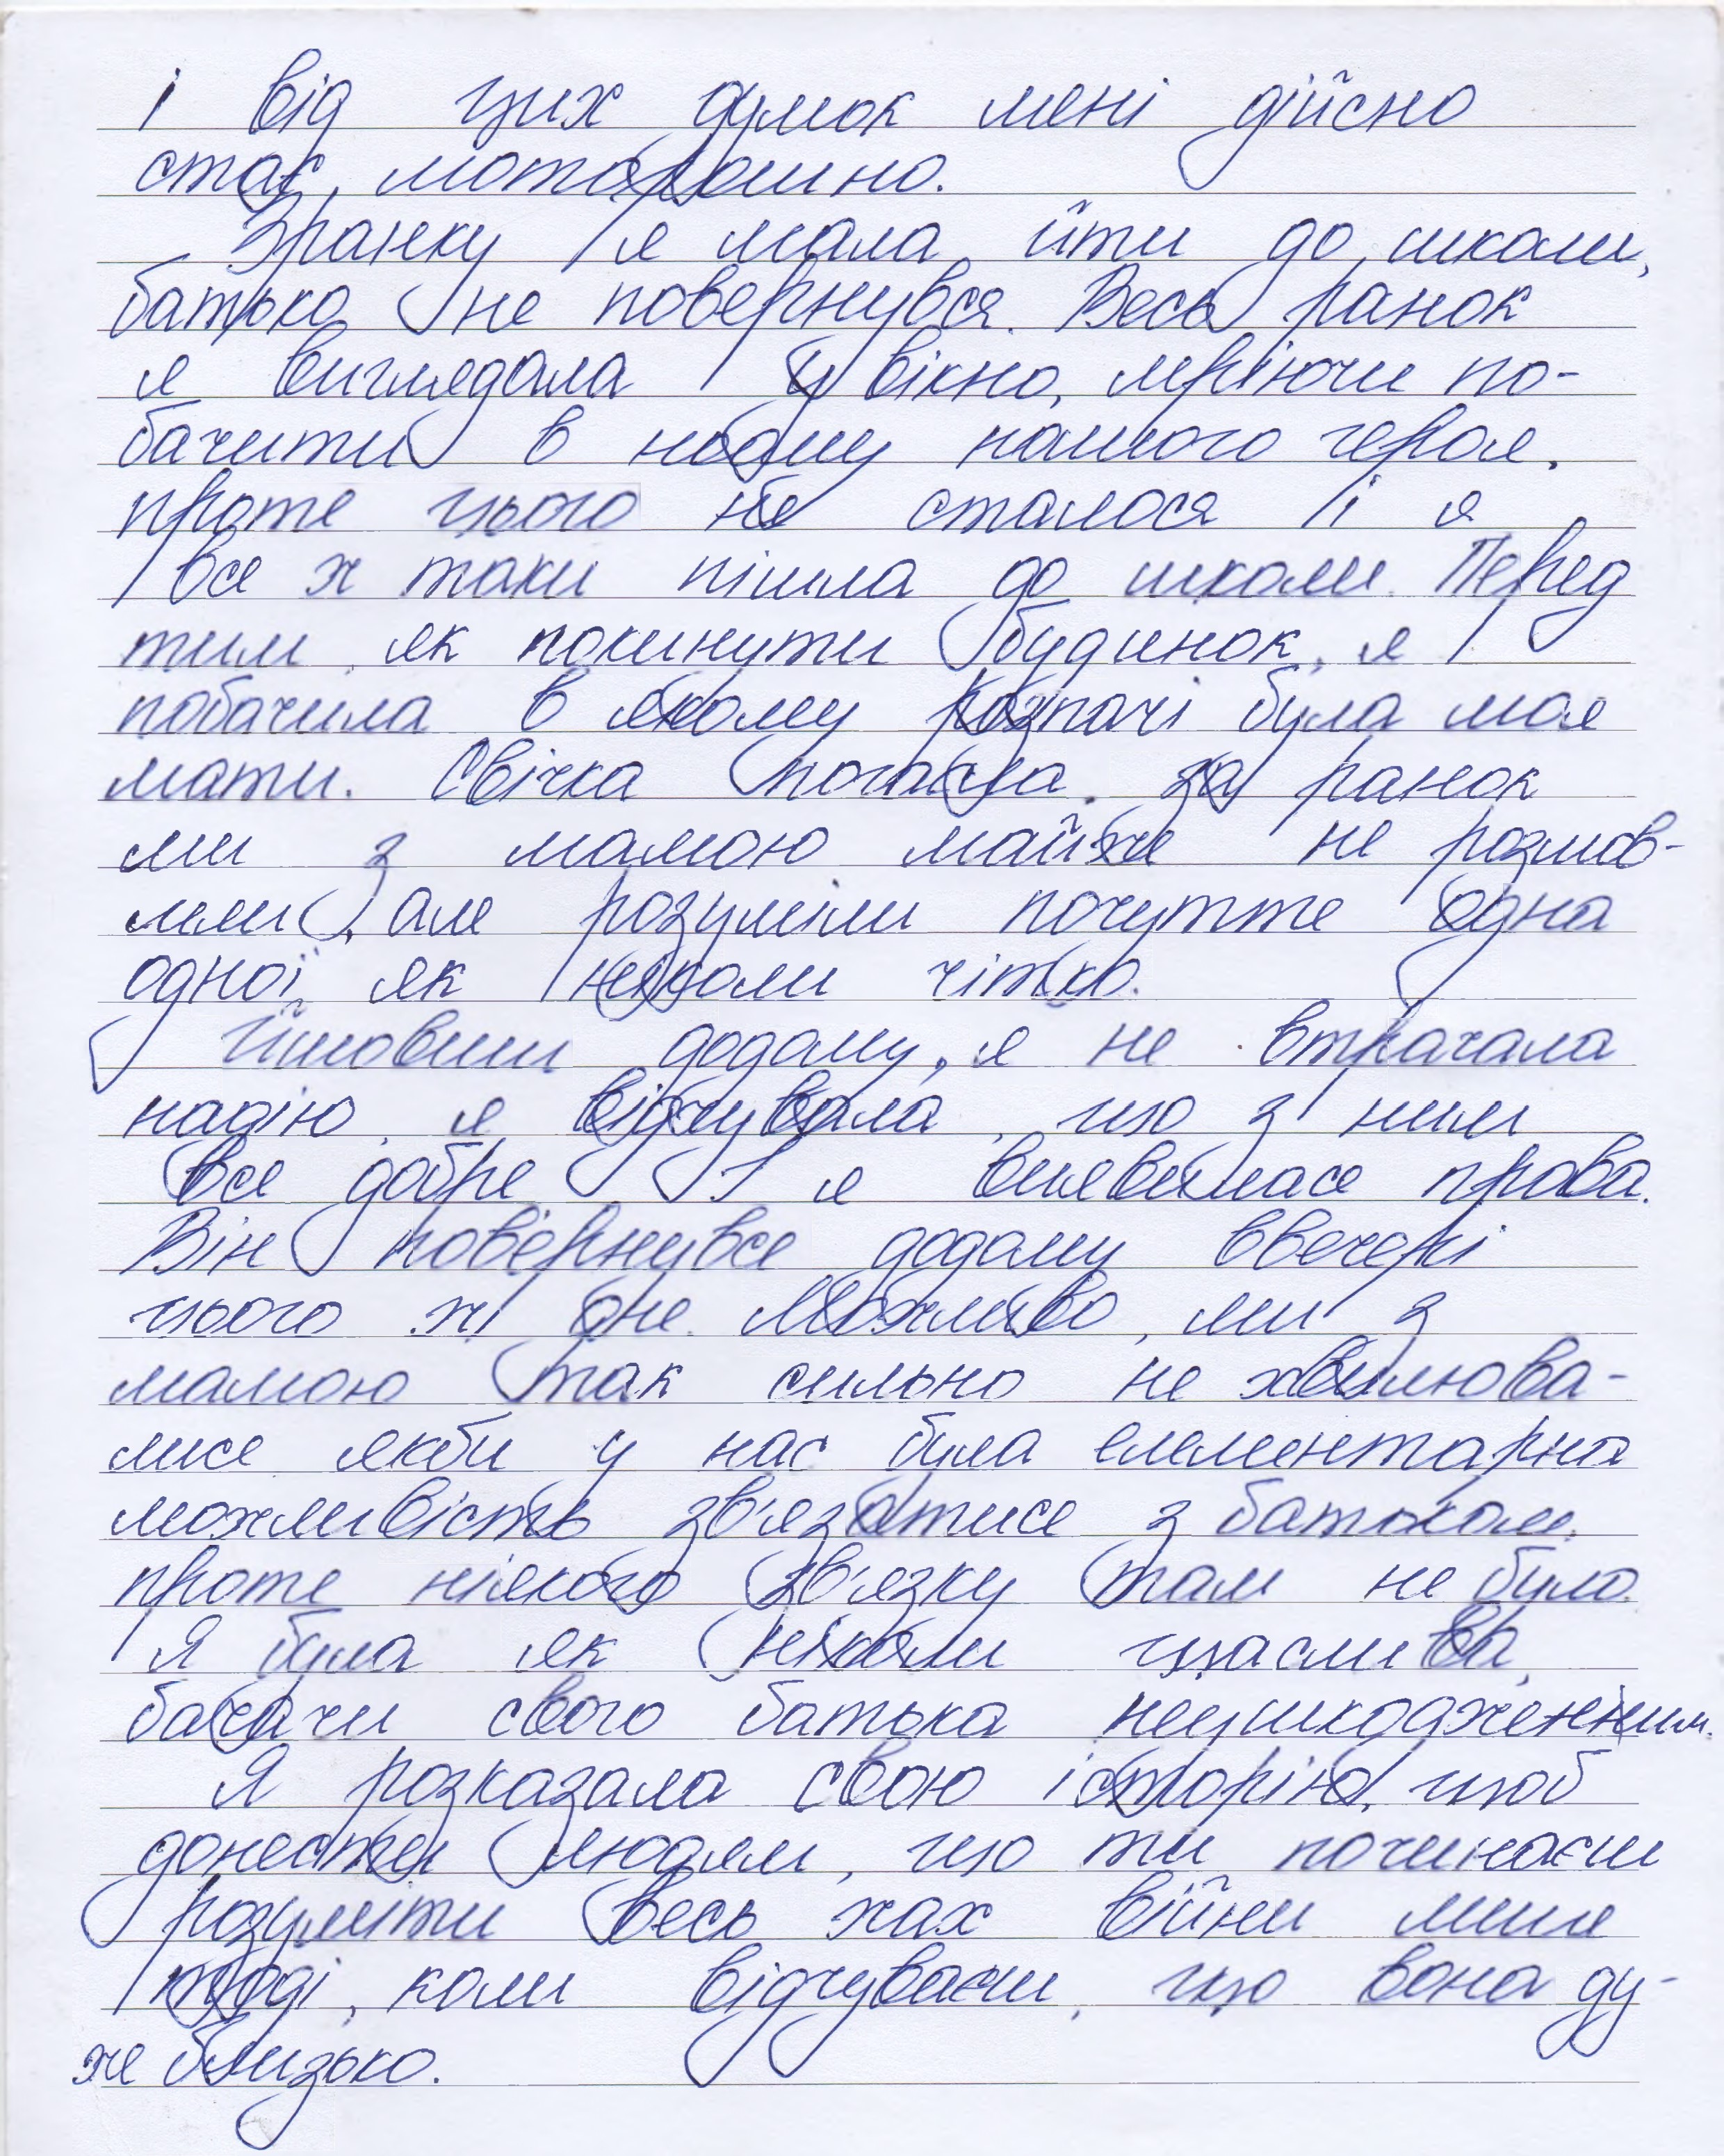 і від цих думок мені дійсно
стає моторошно.
Зранку я мала йти до школи,
батько не повернувся. Весь ранок
я виглядала у вікно, мріючи по-
бачити в ньому нашого героя.
проте цього не сталося і я
все ж таки пішла до школи. Перед
тим, як покинути будинок, я
побачила в якому розпачі була моя
мати. Свічка погасла. за ранок
ми з мамою майже не розмов-
ляли, але розуміли почуття одна
одної як ніколи чітко.
Йшовши додому, я не втрачала
надію, я відчувала, що з ним
все добре. І я виявилася права.
Він повернувся додому ввечері
цього ж дня. Можливо, ми з
мамою так сильно не хвилюва-
лися якби у нас була елементарна
можливість зв'язатися з батьком,
проте ніякого зв'язку там не було.
Я була як ніколи щаслива,
бачачи свого батька неушкодженим.
Я розказала свою історію, щоб
донести людям, що ти починаєш
розуміти весь жах війни лише
тоді, коли відчуваєш, що вона ду-
же близько.